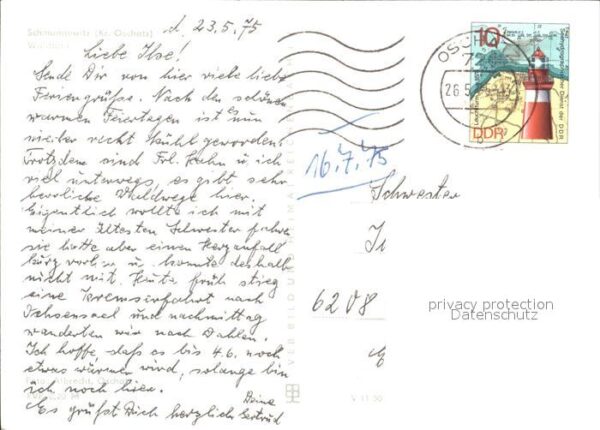 Schmannewitz (Kr. Oschatz)
d. 23.5.75
Liebe Ilse!
Sende Dir von hier viele liebe
Feriengrüsse. Nach den schönen
warmen Feiertagen ist es nun
wieder recht kühl geworden.
Trotzdem sind Frl. Hahn u. ich
viel unterwegs, es gibt sehr
herrliche Waldwege hier.
Eigentlich wollte ich mit
meiner ältesten Schwester fahren
sie hatte aber einen Herzanfall
kurz vorher u. konnte deshalb
nicht mit. Heute früh stieg
eine Kremserfahrt nach
Ochsensaal und nachmittag
wanderten wir nach Dahlen.
Ich hoffe, dass es bis 4.6. noch
etwas wärmer wird, solange bin
ich noch hier.
Es grüsst Dich herzlich Deine Gertrud
VEB BILD UND HEIMAT REICHENBACH
V 11 50
16.7.75
Schwester
6208
10
DDR
Seehydrographischer Dienst der DDR
OSCHATZ
72
26.5.75
privacy protection
Datenschutz